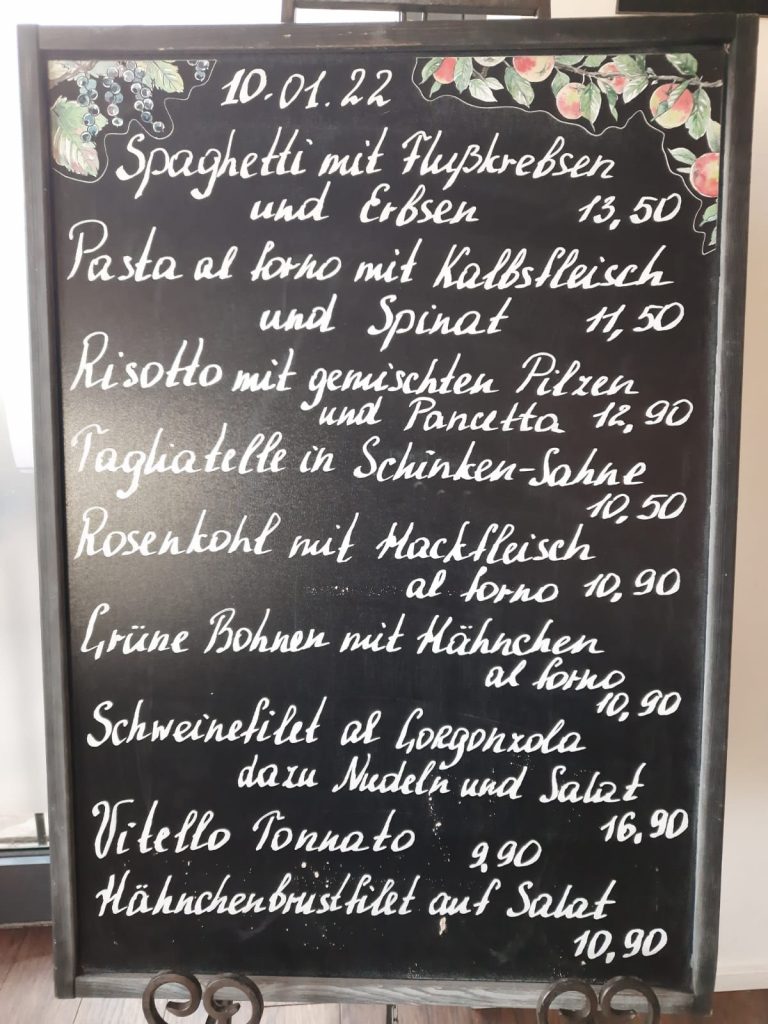 10.01.22
Spaghetti mit Flußkrebsen
und Erbsen 13,50
Pasta al forno mit Kalbsfleisch
und Spinat 11,50
Risotto mit gemischten Pilzen
und Pancetta 12,90
Tagliatelle in Schinken-Sahne
10,50
Rosenkohl mit Hackfleisch
al forno 10,90
Grüne Bohnen mit Hähnchen
al forno
10,90
Schweinefilet al Gorgonzola
dazu Nudeln und Salat
16,90
Vitello Tonnato 9,90
Hähnchenbrustfilet auf Salat
10,90